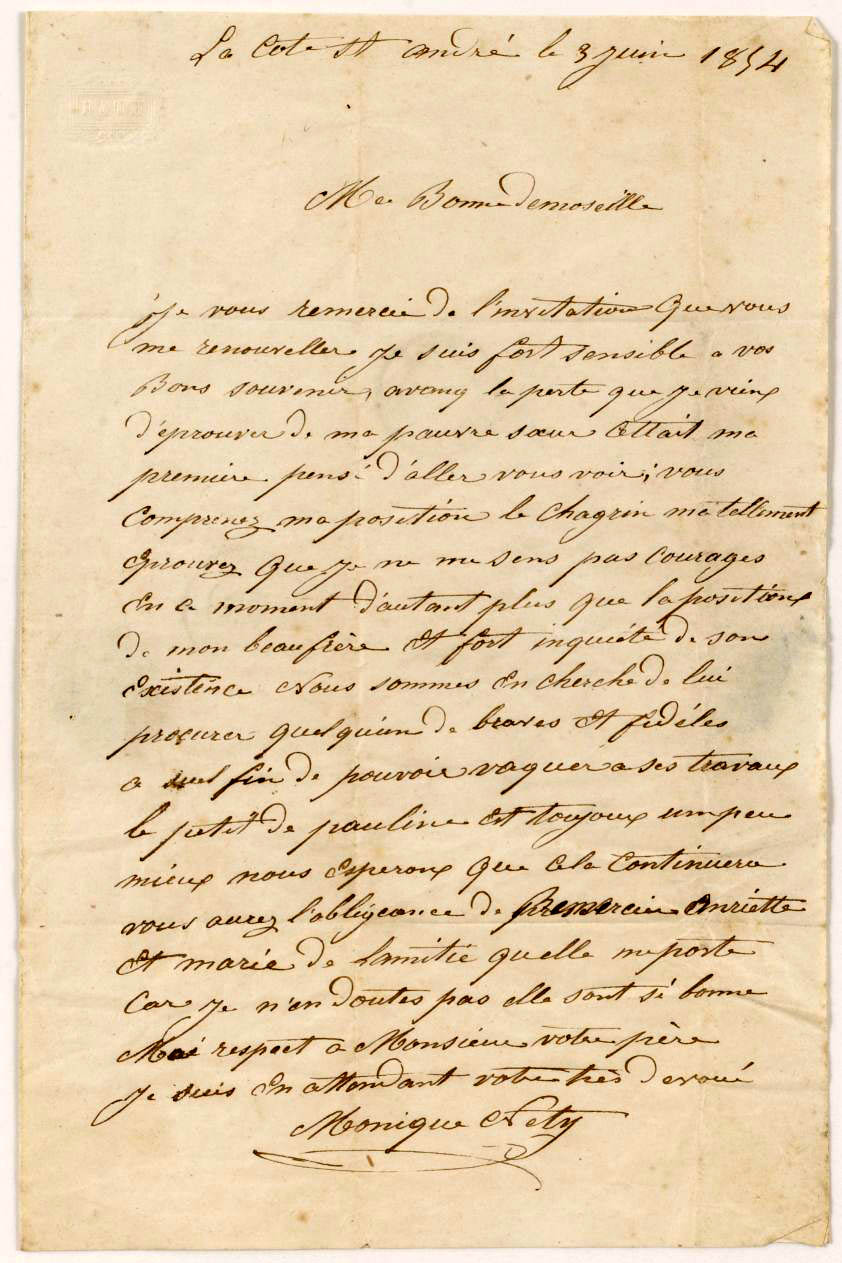 La Cote St andré le 3 juin 1854
Ma Bonne demoseille
Je vous remercie de l'invitation que vous
me renouveller je suis fort sensible a vos
Bons souvenir, avang la perte que je viens
d'éprouver de ma pauvre sœur Cétait ma
premiere pensé d'aller vous voir; vous
comprenez ma position le chagrin ma tellement
éprouvez que je ne me sens pas courages
en ce moment d'autant plus que la position
de mon beaufrère et fort inquiété de son
existence Nous sommes en cherche de lui
procurer quelquún de braves et fidéles
a fin de pouvoir vaquer a ses travaux
le petit de pauline est toujour un peu
mieux nous esperons que cela continuera
vous aurez l'obligeance de remercier Anriette
et marie de lamitie quelle me porte
Car je n'en doutes pas elle sont sé bonne
Mes respect a Monsieur votre père
Je suis en attendant votre très devoué
Monique Nety